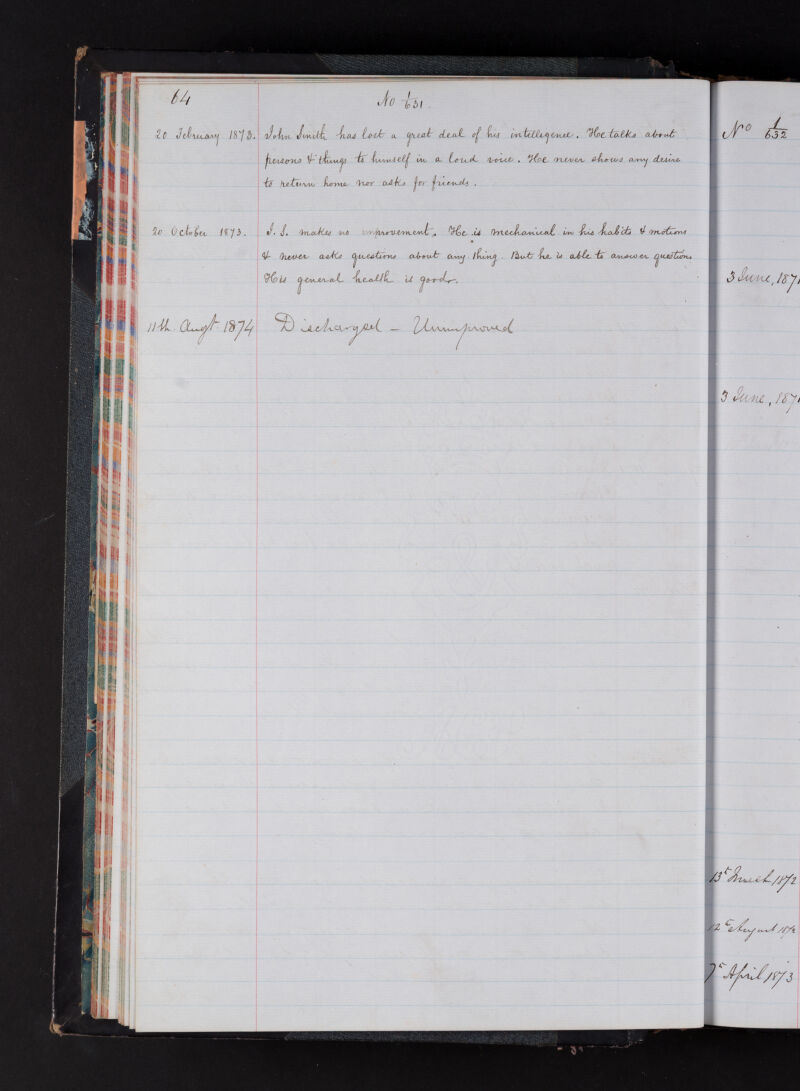 64
No 1/631.
20 February 1873. John Smith has lost a great deal of his intelligence. He talks about
persons & things to himself in a loud voice. He never shows any desire
to return home nor asks for friends.
20 October 1873. J. S. makes no improvement. He is mechanical in his habits & motions
& never asks questions about any thing. But he is able to answer questions
His general health is good.
11th Augt 1874 Discharged – Unimproved
No 1/632
3 June, 187
3 June, 187
13th March 1872
12th August 1872
7th April 1873